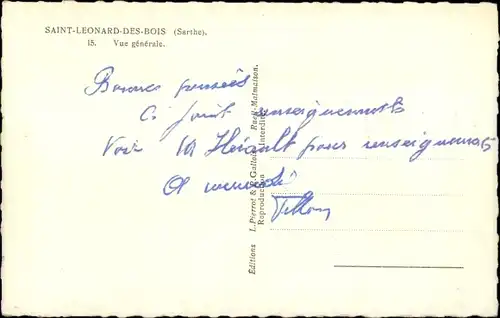 SAINT-LEONARD-DES-BOIS (Sarthe).
15. Vue générale.
Bonnes pensées
Ci joint renseignements
Voir Hérault pour renseignements
A mercredi
Editions L. Pierrot & Gallois Rueil-Malmaison.
Reproduction Interdite